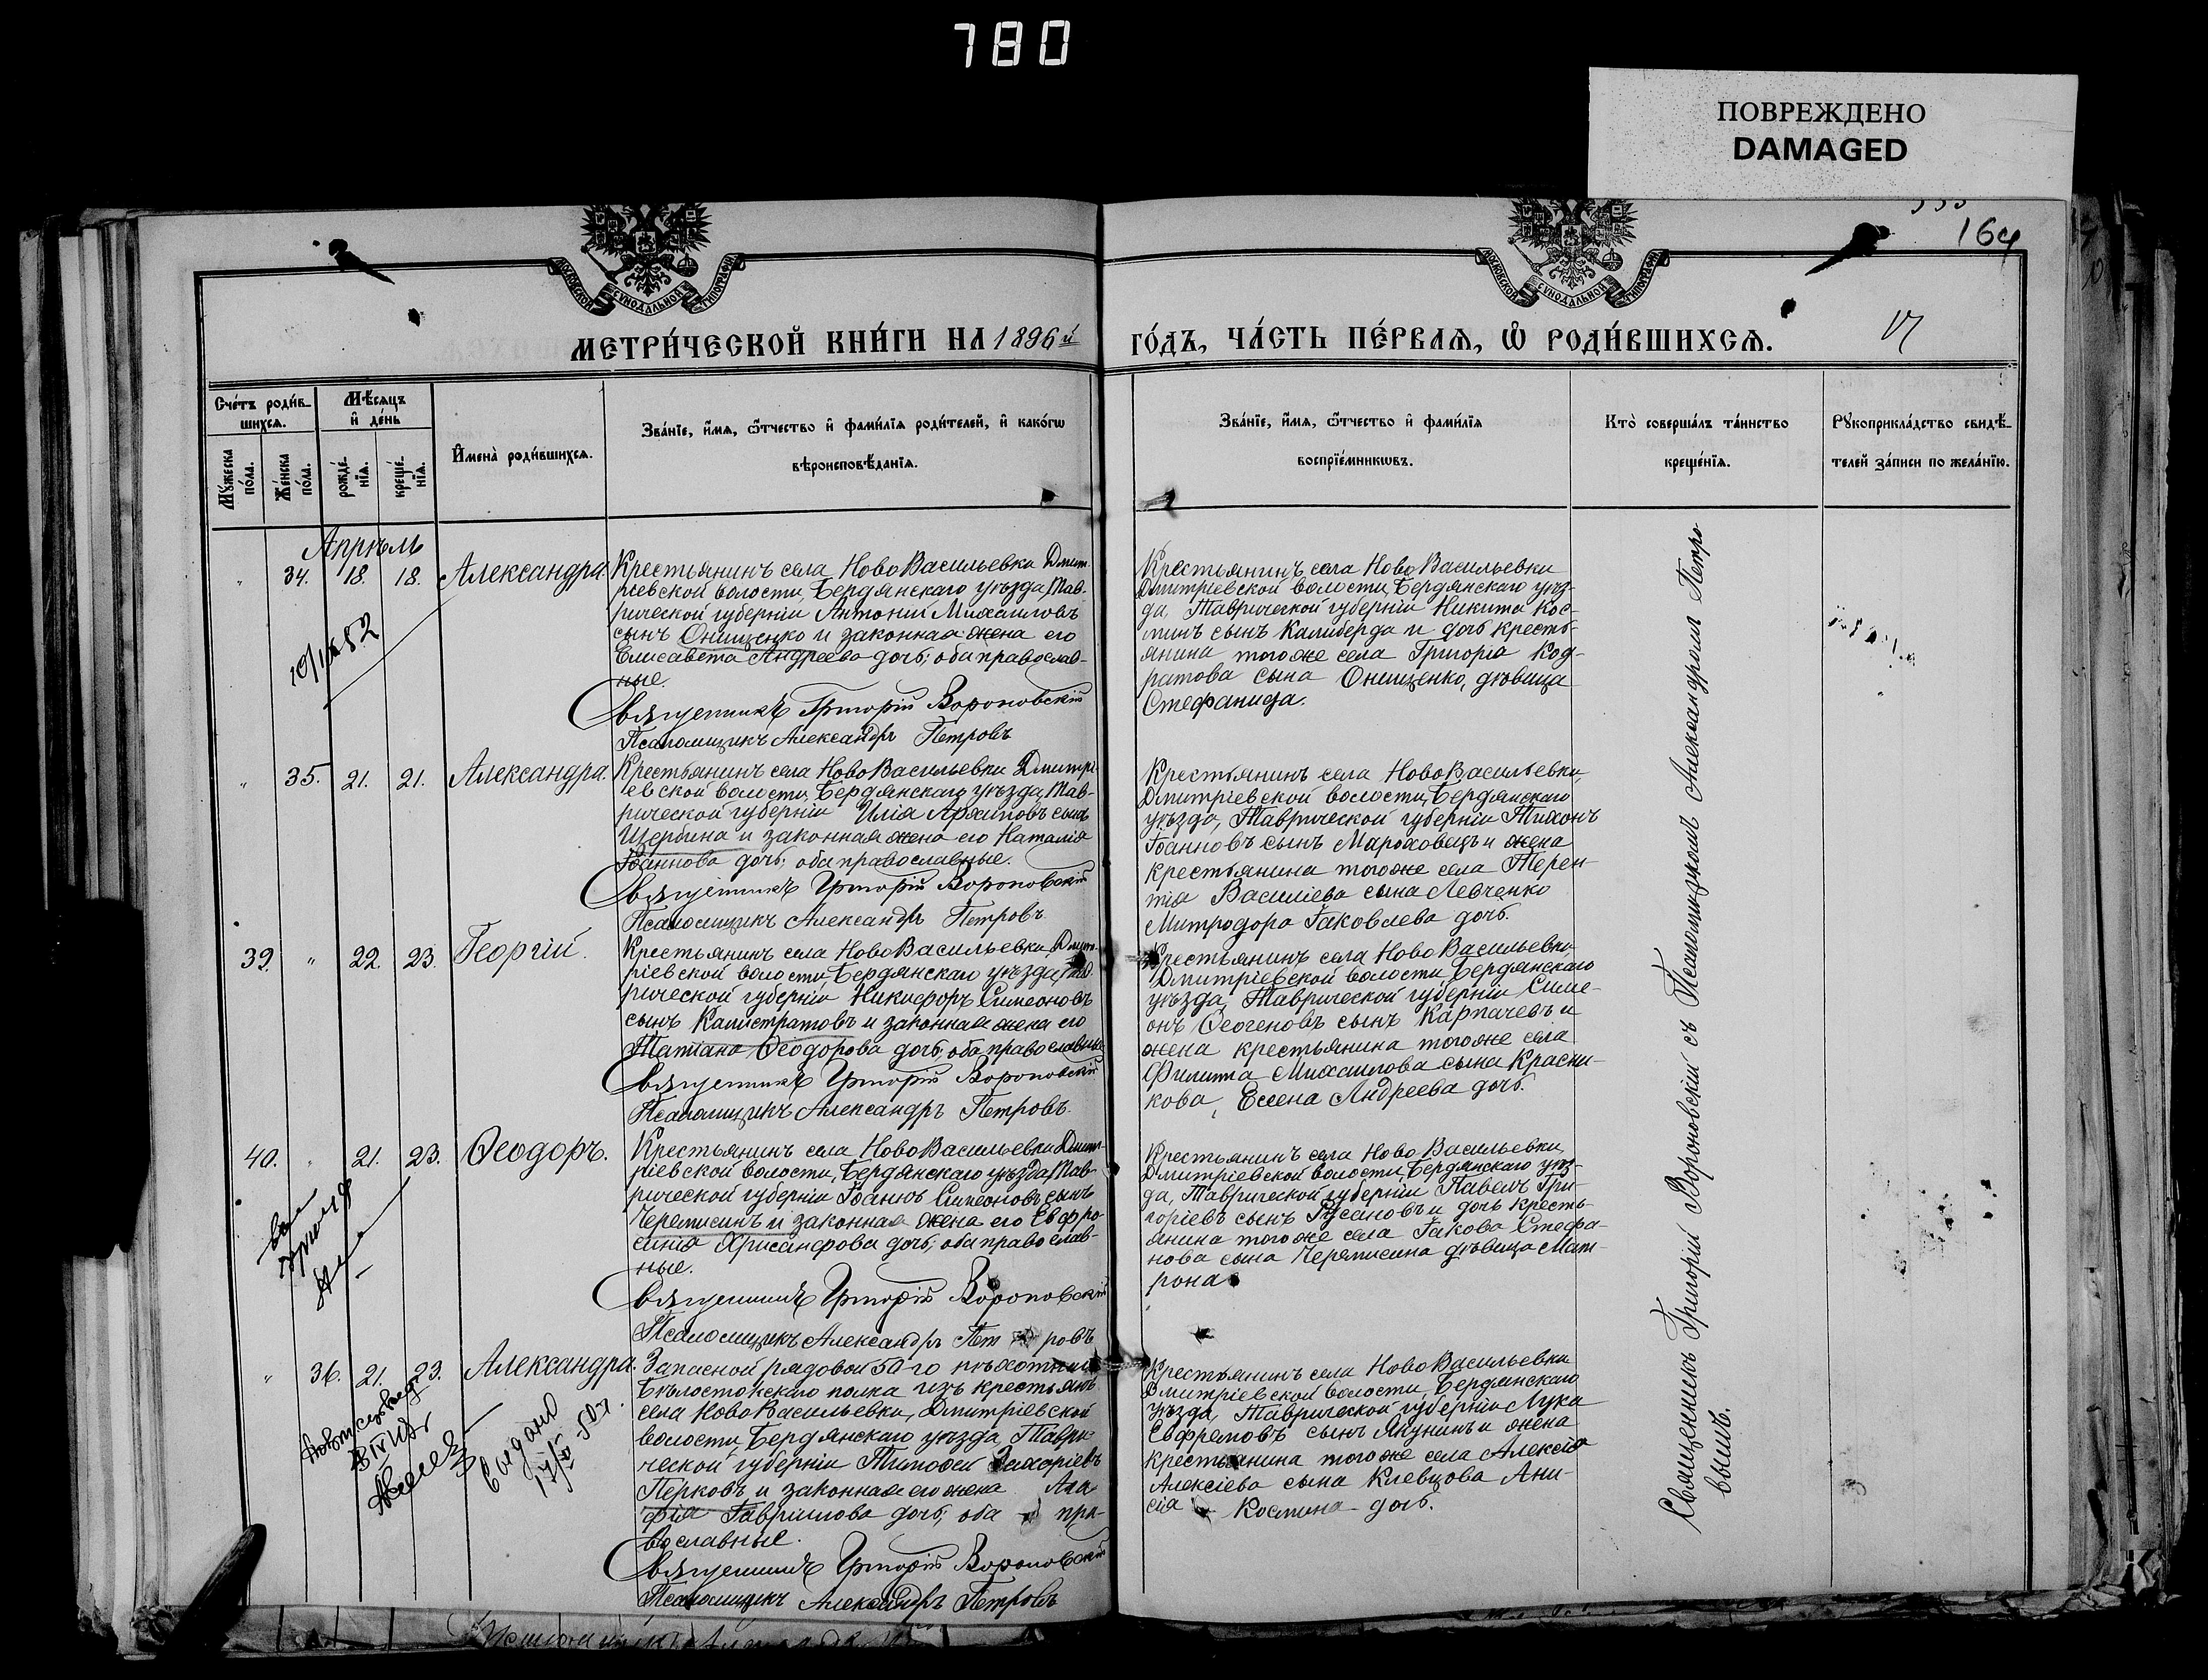 780
ПОВРЕЖДЕНО
DAMAGED
164
МОСКОВСКОЙ СУНОДАЛЬНОЙ ТИПОГРАФІИ
МОСКОВСКОЙ СУНОДАЛЬНОЙ ТИПОГРАФІИ
МЕТРИ́ЧЕСКОЙ КНИ́ГИ НА 1896й
ГО́ДЪ, ЧА́СТЬ ПЕ́РВАѦ, Ѡ҆ РОДИ́ВШИХСѦ.
Сче́тъ роди́в-
шихсѧ.
Мѣ́сѧцъ
и҆ де́нь
Мꙋ́жеска
по́ла.
Же́нска
по́ла.
рожде́-
нїѧ.
креще́-
нїѧ.
И҆мена̀ роди́вшихсѧ.
Зва́нїе, и҆́мѧ, ѻ҆́тчество и҆ фами́лїѧ роди́телей, и҆ како́гѡ
вѣроисповѣ́данїѧ.
Зва́нїе, и҆́мѧ, ѻ҆́тчество и҆ фами́лїѧ
воспрїе́мникѡвъ.
Кто̀ соверша́лъ та́инство
креще́нїѧ.
Рꙋкоприкла́дство свидѣ́-
телей за́писи по жела́нїю.
Апрѣль
" 34. 18. 18. Александра.
Крестьянинъ села НовоВасильевки Дмит-
ріевской волости, Бердянскаго уѣзда, Тав-
рической губерніи Антоній Михаиловъ
сынъ Онищенко и законная жена его
Елисавета Андреева дочь; оба православ-
ные.
Священникъ Григорій Вороновскій
Псаломщикъ Александръ Петровъ
Крестьянинъ села НовоВасильевки
Дмитріевской волости, Бердянскаго уѣз-
да, Таврической губерніи Никита Кос-
минъ сынъ Калиберда и дочь кресть-
янина того же села Григорія Код-
ратова сына Онищенко, дѣвица
Стефанида.
" 35. 21. 21. Александра.
Крестьянинъ села НовоВасильевки Дмитрі-
евской волости, Бердянскаго уѣзда, Тав-
рической губерніи Илія Архиповъ сынъ
Щербина и законная жена его Наталія
Іоаннова дочь; оба православные.
Священникъ Григорій Вороновскій
Псаломщикъ Александръ Петровъ
Крестьянинъ села НовоВасильевки
Дмитріевской волости, Бердянскаго
уѣзда, Таврической губерніи Тихонъ
Іоанновъ сынъ Мароховецъ и жена
крестьянина того же села Терен-
тія Василіева сына Левченко
Митродора Іаковлева дочь.
39. " 22. 23. Георгій.
Крестьянинъ села НовоВасильевки, Дмит-
ріевской волости, Бердянскаго уѣзда, Тав-
рической губерніи Никифоръ Симеоновъ
сынъ Калистратовъ и законная жена его
Татіана Ѳеодорова дочь; оба православные
Священникъ Григорій Вороновскій
Псаломщикъ Александръ Петровъ.
Крестьянинъ села НовоВасильевки,
Дмитріевской волости, Бердянскаго
уѣзда, Таврической губерніи Симе-
онъ Ѳеогеновъ сынъ Карпачевъ и
жена крестьянина того же села
Филиппа Михаилова сына Красни-
кова, Елена Андреева дочь.
40. " 21. 23. Ѳеодоръ.
Крестьянинъ села НовоВасильевки Дмит-
ріевской волости, Бердянскаго уѣзда, Тав-
рической губерніи Іоаннъ Симеоновъ сынъ
Черемисинъ и законная жена его Евфро-
синія Хрисанфова дочь; оба православ-
ные.
Священникъ Григорій Вороновскій
Псаломщикъ Александръ Петровъ
Крестьянинъ села НовоВасильевки
Дмитріевской волости, Бердянскаго уѣз-
да, Таврической губерніи Павелъ Гри-
горіевъ сынъ Русановъ и дочь кресть-
янина того же села Іакова Стефа-
нова сына Черемисина дѣвица Мат-
рона
" 36. 21. 23. Александра.
Запасной рядовой 50-го пѣхотнаго
Бѣлостокскаго полка изъ крестьянъ
села НовоВасильевки, Дмитріевской
волости, Бердянскаго уѣзда, Таври-
ческой губерніи Тимоѳей Захаріевъ
Перковъ и законная его жена Ага-
фія Гавриилова дочь; оба пра-
вославные.
Священникъ Григорій Вороновскій
Псаломщикъ Александръ Петровъ
Выдано
Крестьянинъ села НовоВасильевки
Дмитріевской волости, Бердянскаго
уѣзда, Таврической губерніи Лука
Евфремовъ сынъ Якунинъ и жена
крестьянина того же села Алексія
Алексіева сына Клевцова Ани-
сія Космина дочь.
Священникъ Григорій Вороновскій съ Псаломщикомъ Александромъ Петро
вымъ.